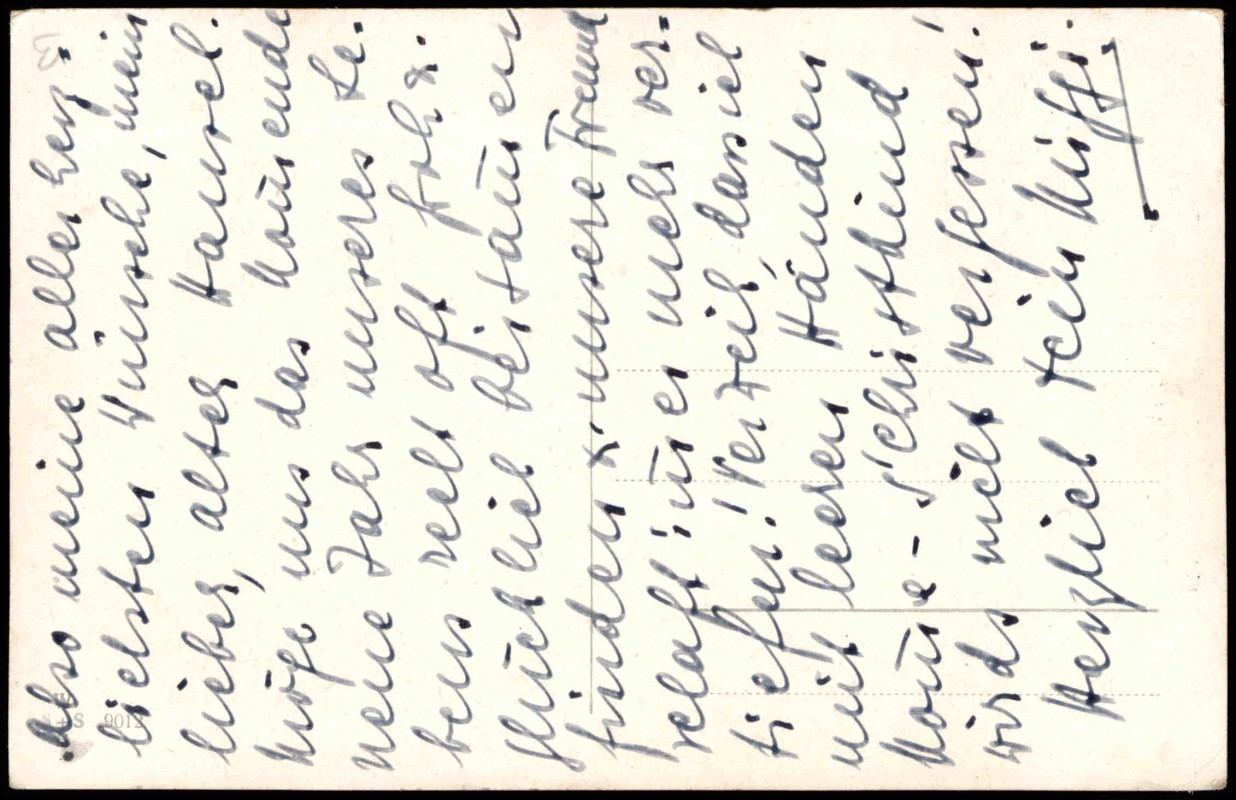 Also meine allerherz-
lichsten Wünsche, mein
lieber, alter Hansel.
Möge uns das kom̄ende
neue Jahr unseres Le-
bens recht oft froh &.
glücklich beisam̄en
finden &. unsere Freund
schaft im̄er mehr ver-
tiefen! Verzeih, dass ich
mit leeren Händen
kom̄e - s'Christkind
wirds nicht vergessen!
Herzlich Dein
S 9012